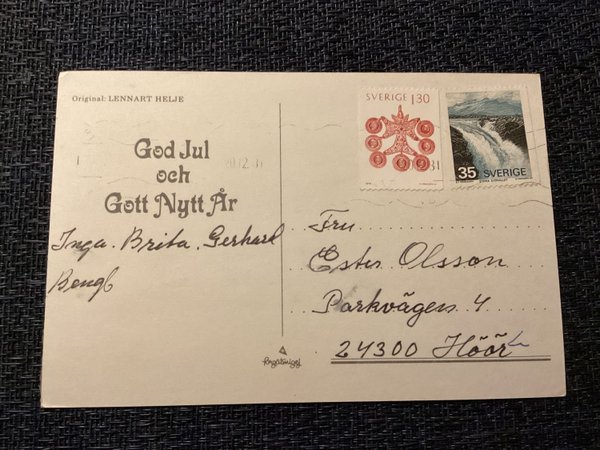 Original: LENNART HELJE
God Jul
och
Gott Nytt År
Inga. Brita. Gerhard
SVERIGE 130
35 SVERIGE
Fru
Ester Olsson
Parkvägen 4
24300 Höör